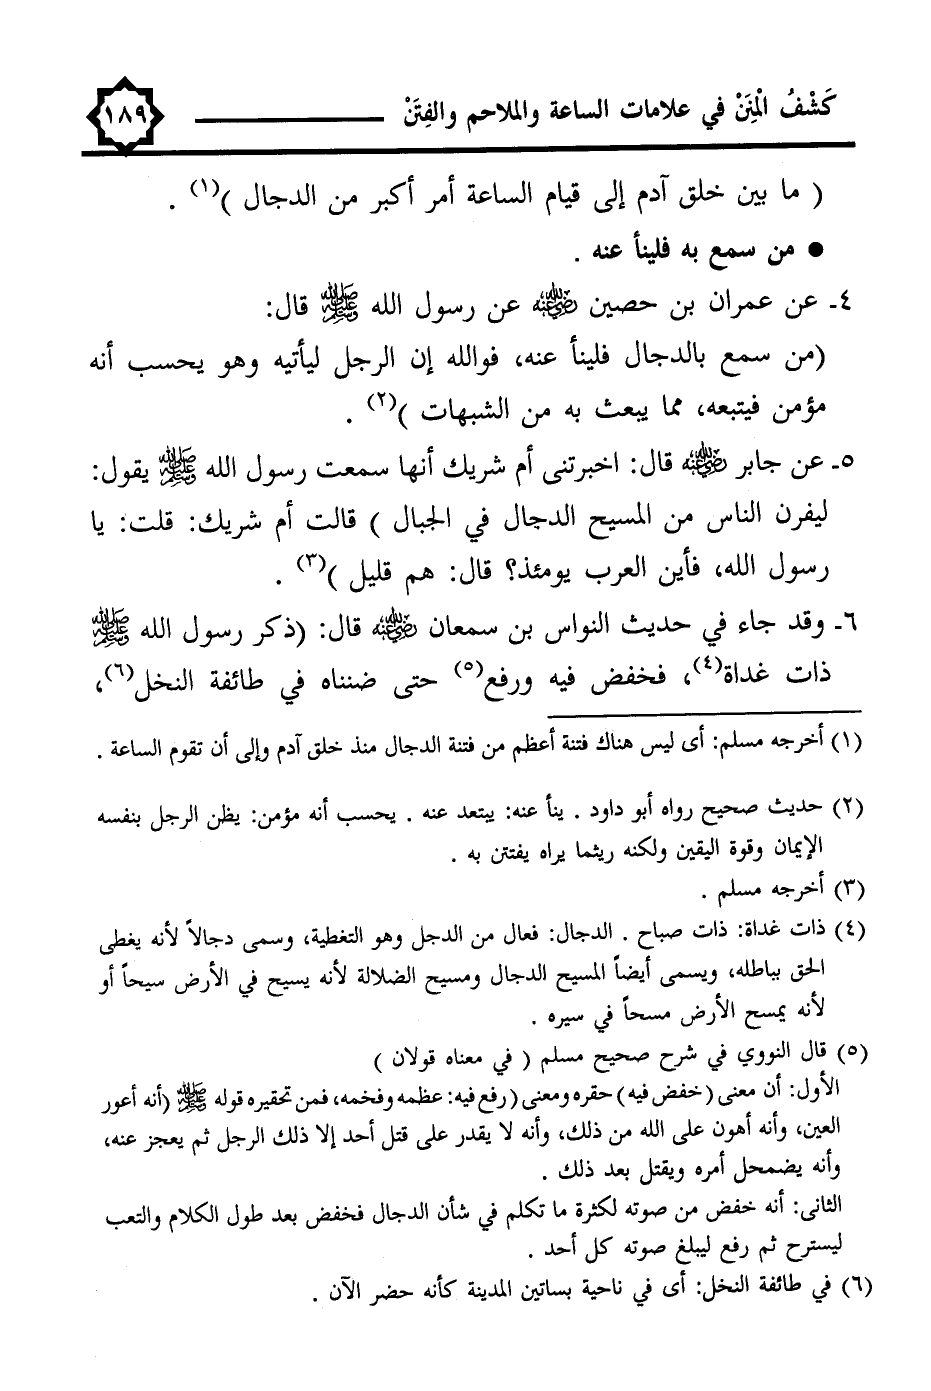 كَشْفُ الْمِنَنْ في علامات الساعة والملاحم والفِتَنْ ١٨٩
( ما بين خلق آدم إلى قيام الساعة أمر أكبر من الدجال )(١) .
● من سمع به فلينأ عنه .
٤ـ عن عمران بن حصين رضي الله عنه عن رسول الله ﷺ قال:
(من سمع بالدجال فلينأ عنه، فوالله إن الرجل ليأتيه وهو يحسب أنه
مؤمن فيتبعه، مما يبعث به من الشبهات )(٢) .
٥ـ عن جابر رضي الله عنه قال: اخبرتنى أم شريك أنها سمعت رسول الله ﷺ يقول:
ليفرن الناس من المسيح الدجال في الجبال ) قالت أم شريك: قلت: يا
رسول الله، فأين العرب يومئذ؟ قال: هم قليل )(٣) .
٦ـ وقد جاء في حديث النواس بن سمعان رضي الله عنه قال: (ذكر رسول الله ﷺ
ذات غداة(٤)، فخفض فيه ورفع(٥) حتى ضنناه في طائفة النخل(٦)،
(١) أخرجه مسلم: أى ليس هناك فتنة أعظم من فتنة الدجال منذ خلق آدم وإلى أن تقوم الساعة .
(٢) حديث صحيح رواه أبو داود . ينأ عنه: يبتعد عنه . يحسب أنه مؤمن: يظن الرجل بنفسه
الإيمان وقوة اليقين ولكنه ريثما يراه يفتتن به .
(٣) أخرجه مسلم .
(٤) ذات غداة: ذات صباح . الدجال: فعال من الدجل وهو التغطية، وسمى دجالاً لأنه يغطى
الحق بباطله، ويسمى أيضاً المسيح الدجال ومسيح الضلالة لأنه يسيح في الأرض سيحاً أو
لأنه يمسح الأرض مسحاً في سيره .
(٥) قال النووي في شرح صحيح مسلم ( في معناه قولان )
الأول: أن معنى (خفض فيه) حقره ومعنى (رفع فيه: عظمه وفخمه، فمن تحقيره قوله ﷺ (أنه أعور
العين، وأنه أهون على الله من ذلك، وأنه لا يقدر على قتل أحد إلا ذلك الرجل ثم يعجز عنه،
وأنه يضمحل أمره ويقتل بعد ذلك .
الثانى: أنه خفض من صوته لكثرة ما تكلم في شأن الدجال فخفض بعد طول الكلام والتعب
ليسترح ثم رفع ليبلغ صوته كل أحد .
(٦) في طائفة النخل: أى في ناحية بساتين المدينة كأنه حضر الآن .